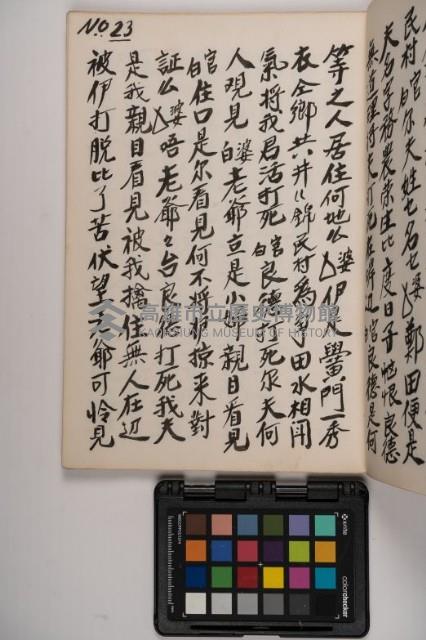 民村 白 尔夫姓乜名乜 鄭田便是
夫名字務農 度日子 恨良德
將夫打死在 官良德是何
No 23
等之人居住何地么 婆 伊 黌門一秀
衣仝鄉共井 錦民村為 田水相鬧
氣將我君活打死 官白 良德打死尔夫何
人現見 婆白 老爺立是小 親目看見
官白 住口是尔看見何不將 掠來對
証么 婆 唔老爺々台良德打死我夫
是我親目看見被我擒住無人在辺
被伊打脫比了苦伏望老爺可怜見
高雄市立歷史博物館
KAOHSIUNG MUSEUM OF HISTORY
x-rite
colorchecker